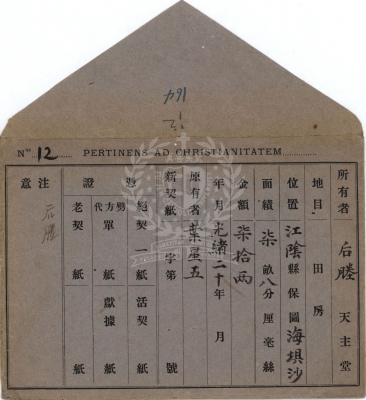 164
12
Nº 12 PERTINENS AD CHRISTIANITATEM
所有者 后塍 天主堂
地目 田 房
位置 江陰縣保圖海垻沙
面積 柒畝八分厘毫絲
金額 柒拾兩
年月 光緒二十年 月
原有者 葉星五
新契紙 字第 號
憑證
絕契一紙 活契 紙
劈方代單 紙 獻據 紙
老契 紙 紙
注意
后塍